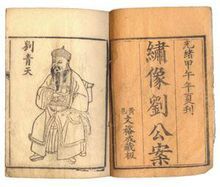 光緒甲午年夏刊
繡像劉公案
文裕藏板
劉青天